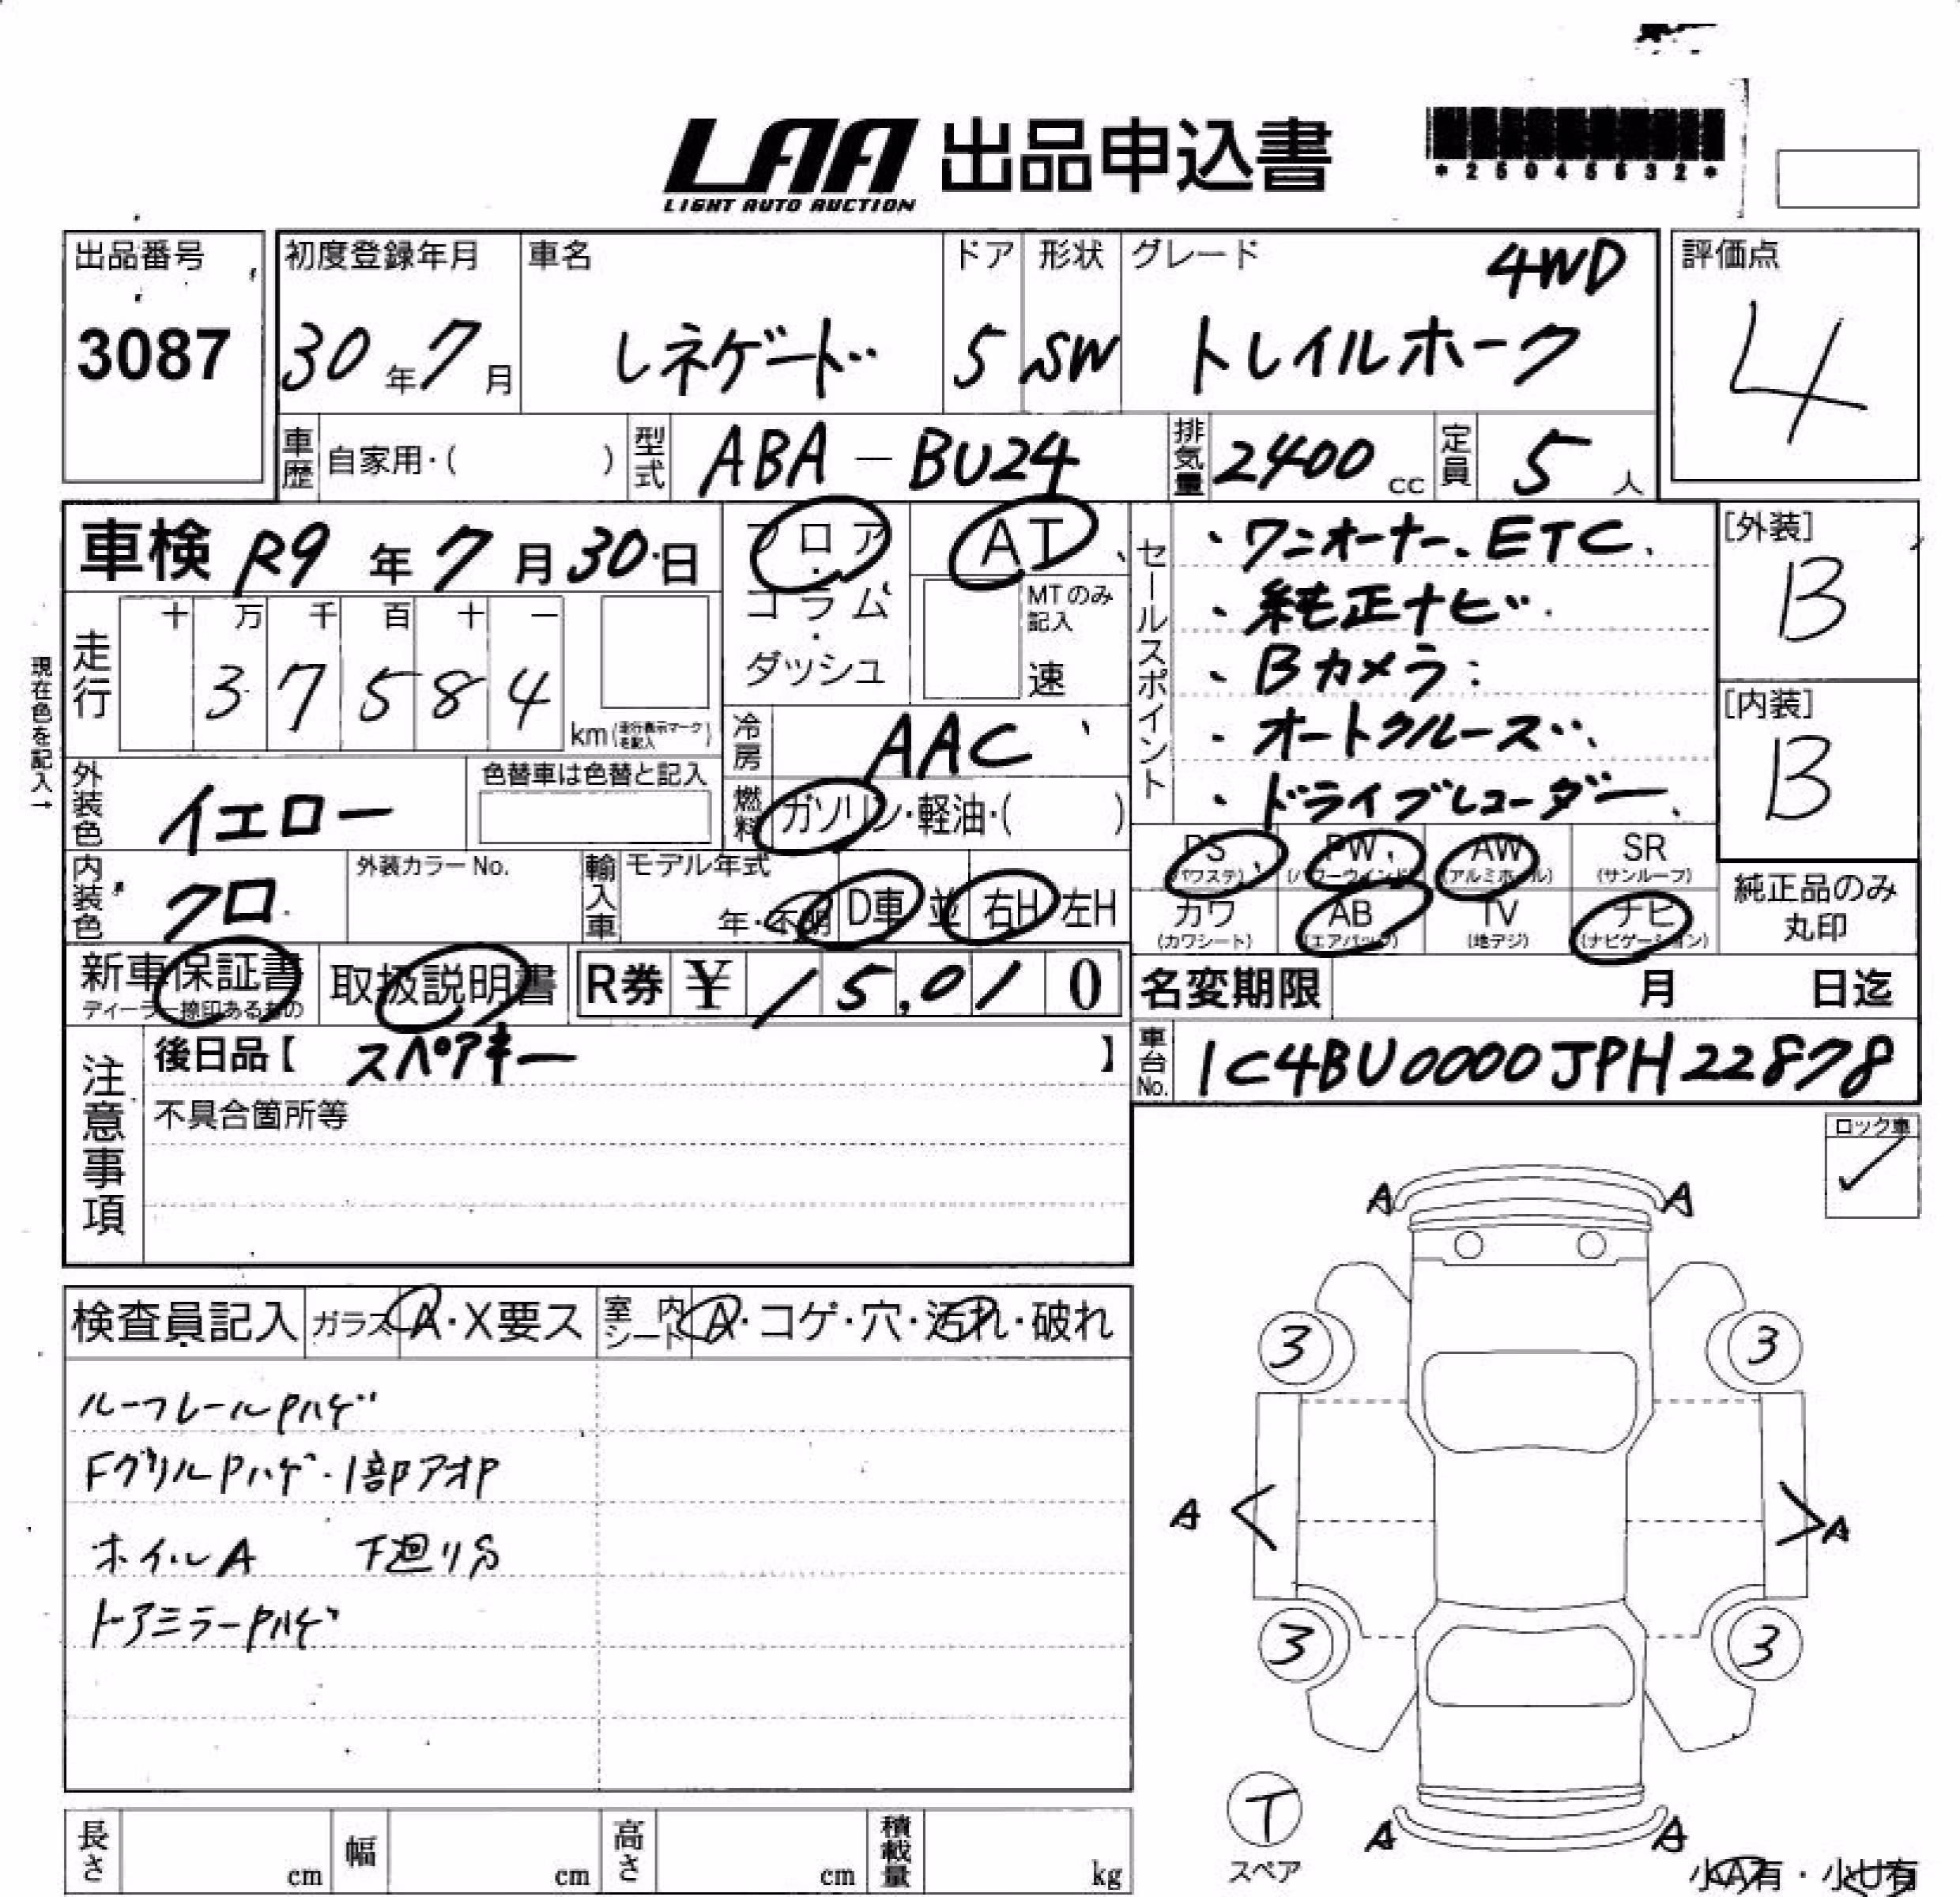 LAA 出品申込書
LIGHT AUTO AUCTION
*25045532*
出品番号
3087
初度登録年月
30年7月
車名
レネゲード
ドア
5
形状
SW
グレード 4WD
トレイルホーク
評価点
4
車歴 自家用・( )
型式 ABA-BU24
排気量 2400cc
定員 5人
車検 R9年7月30日
現在色を記入→
走行 十 万 千 百 十 一
3 7 5 8 4
km(走行表示マークを記入)
フロア・コラム・ダッシュ
AT
MTのみ記入
速
冷房 AAC
燃料 ガソリン・軽油・( )
外装色 イエロー
色替車は色替と記入
内装色 クロ
外装カラーNo.
輸入車 モデル年式
年・不明
D車 並 右H 左H
セールスポイント
・ワンオーナー、ETC.
・純正ナビ
・Bカメラ
・オートクルーズ
・ドライブレコーダー
[外装]
B
[内装]
B
PS (パワステ)
PW (パワーウインド)
AW (アルミホイール)
SR (サンルーフ)
カワ (カワシート)
AB (エアバッグ)
TV (地デジ)
ナビ (ナビゲーション)
純正品のみ丸印
新車保証書
ディーラー捺印あるもの
取扱説明書
R券 ¥ 15,010
名変期限 月 日迄
車台No. 1C4BU0000JPH22878
注意事項
後日品【 スペアキー 】
不具合箇所等
ロック車
✓
検査員記入
ガラス A・X要ス
室内シート A・コゲ・穴・汚れ・破れ
ルーフレールPハゲ
FグリルPハゲ・1部アオP
ホイルA 下廻りS
ドアミラーPハゲ
A A
3 3
A A
3 3
A A
T
スペア
小A有・小U有
長さ cm
幅 cm
高さ cm
積載量 kg